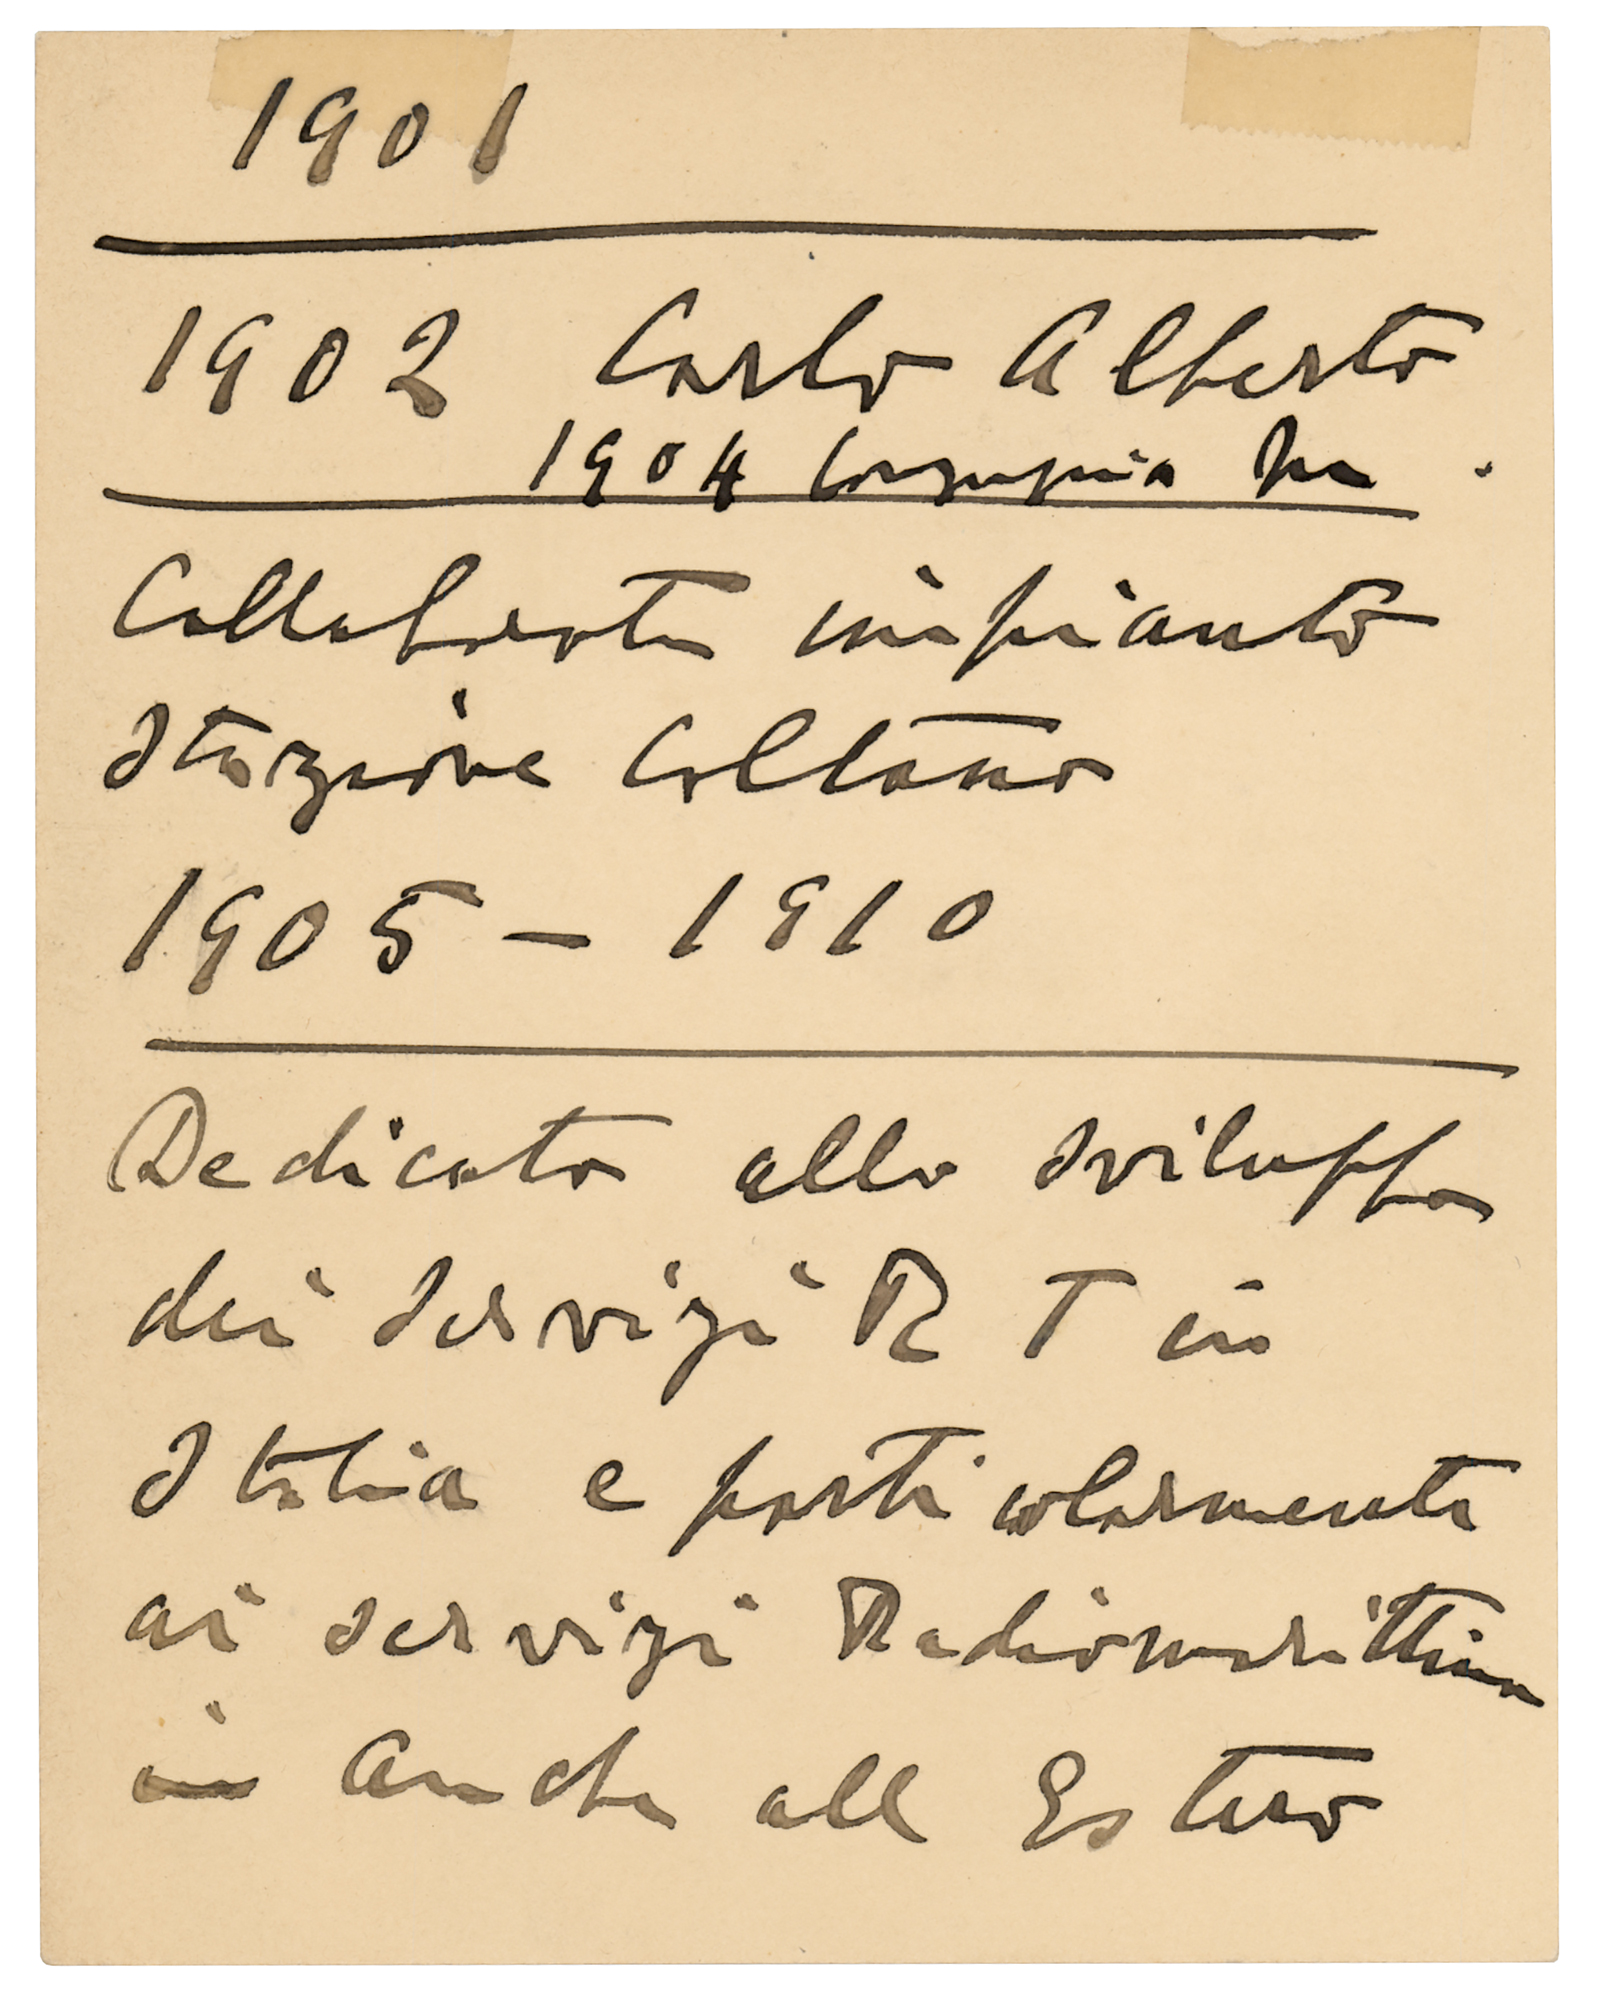 1901
1902 Carlo Alberto
1904
Collaborato impianto
Stazione Coltano
1905 – 1910
Dedicato allo sviluppo
dei Servizi R T in
Italia e particolarmente
ai servizi Radiomarittimi
in Anche all Estero